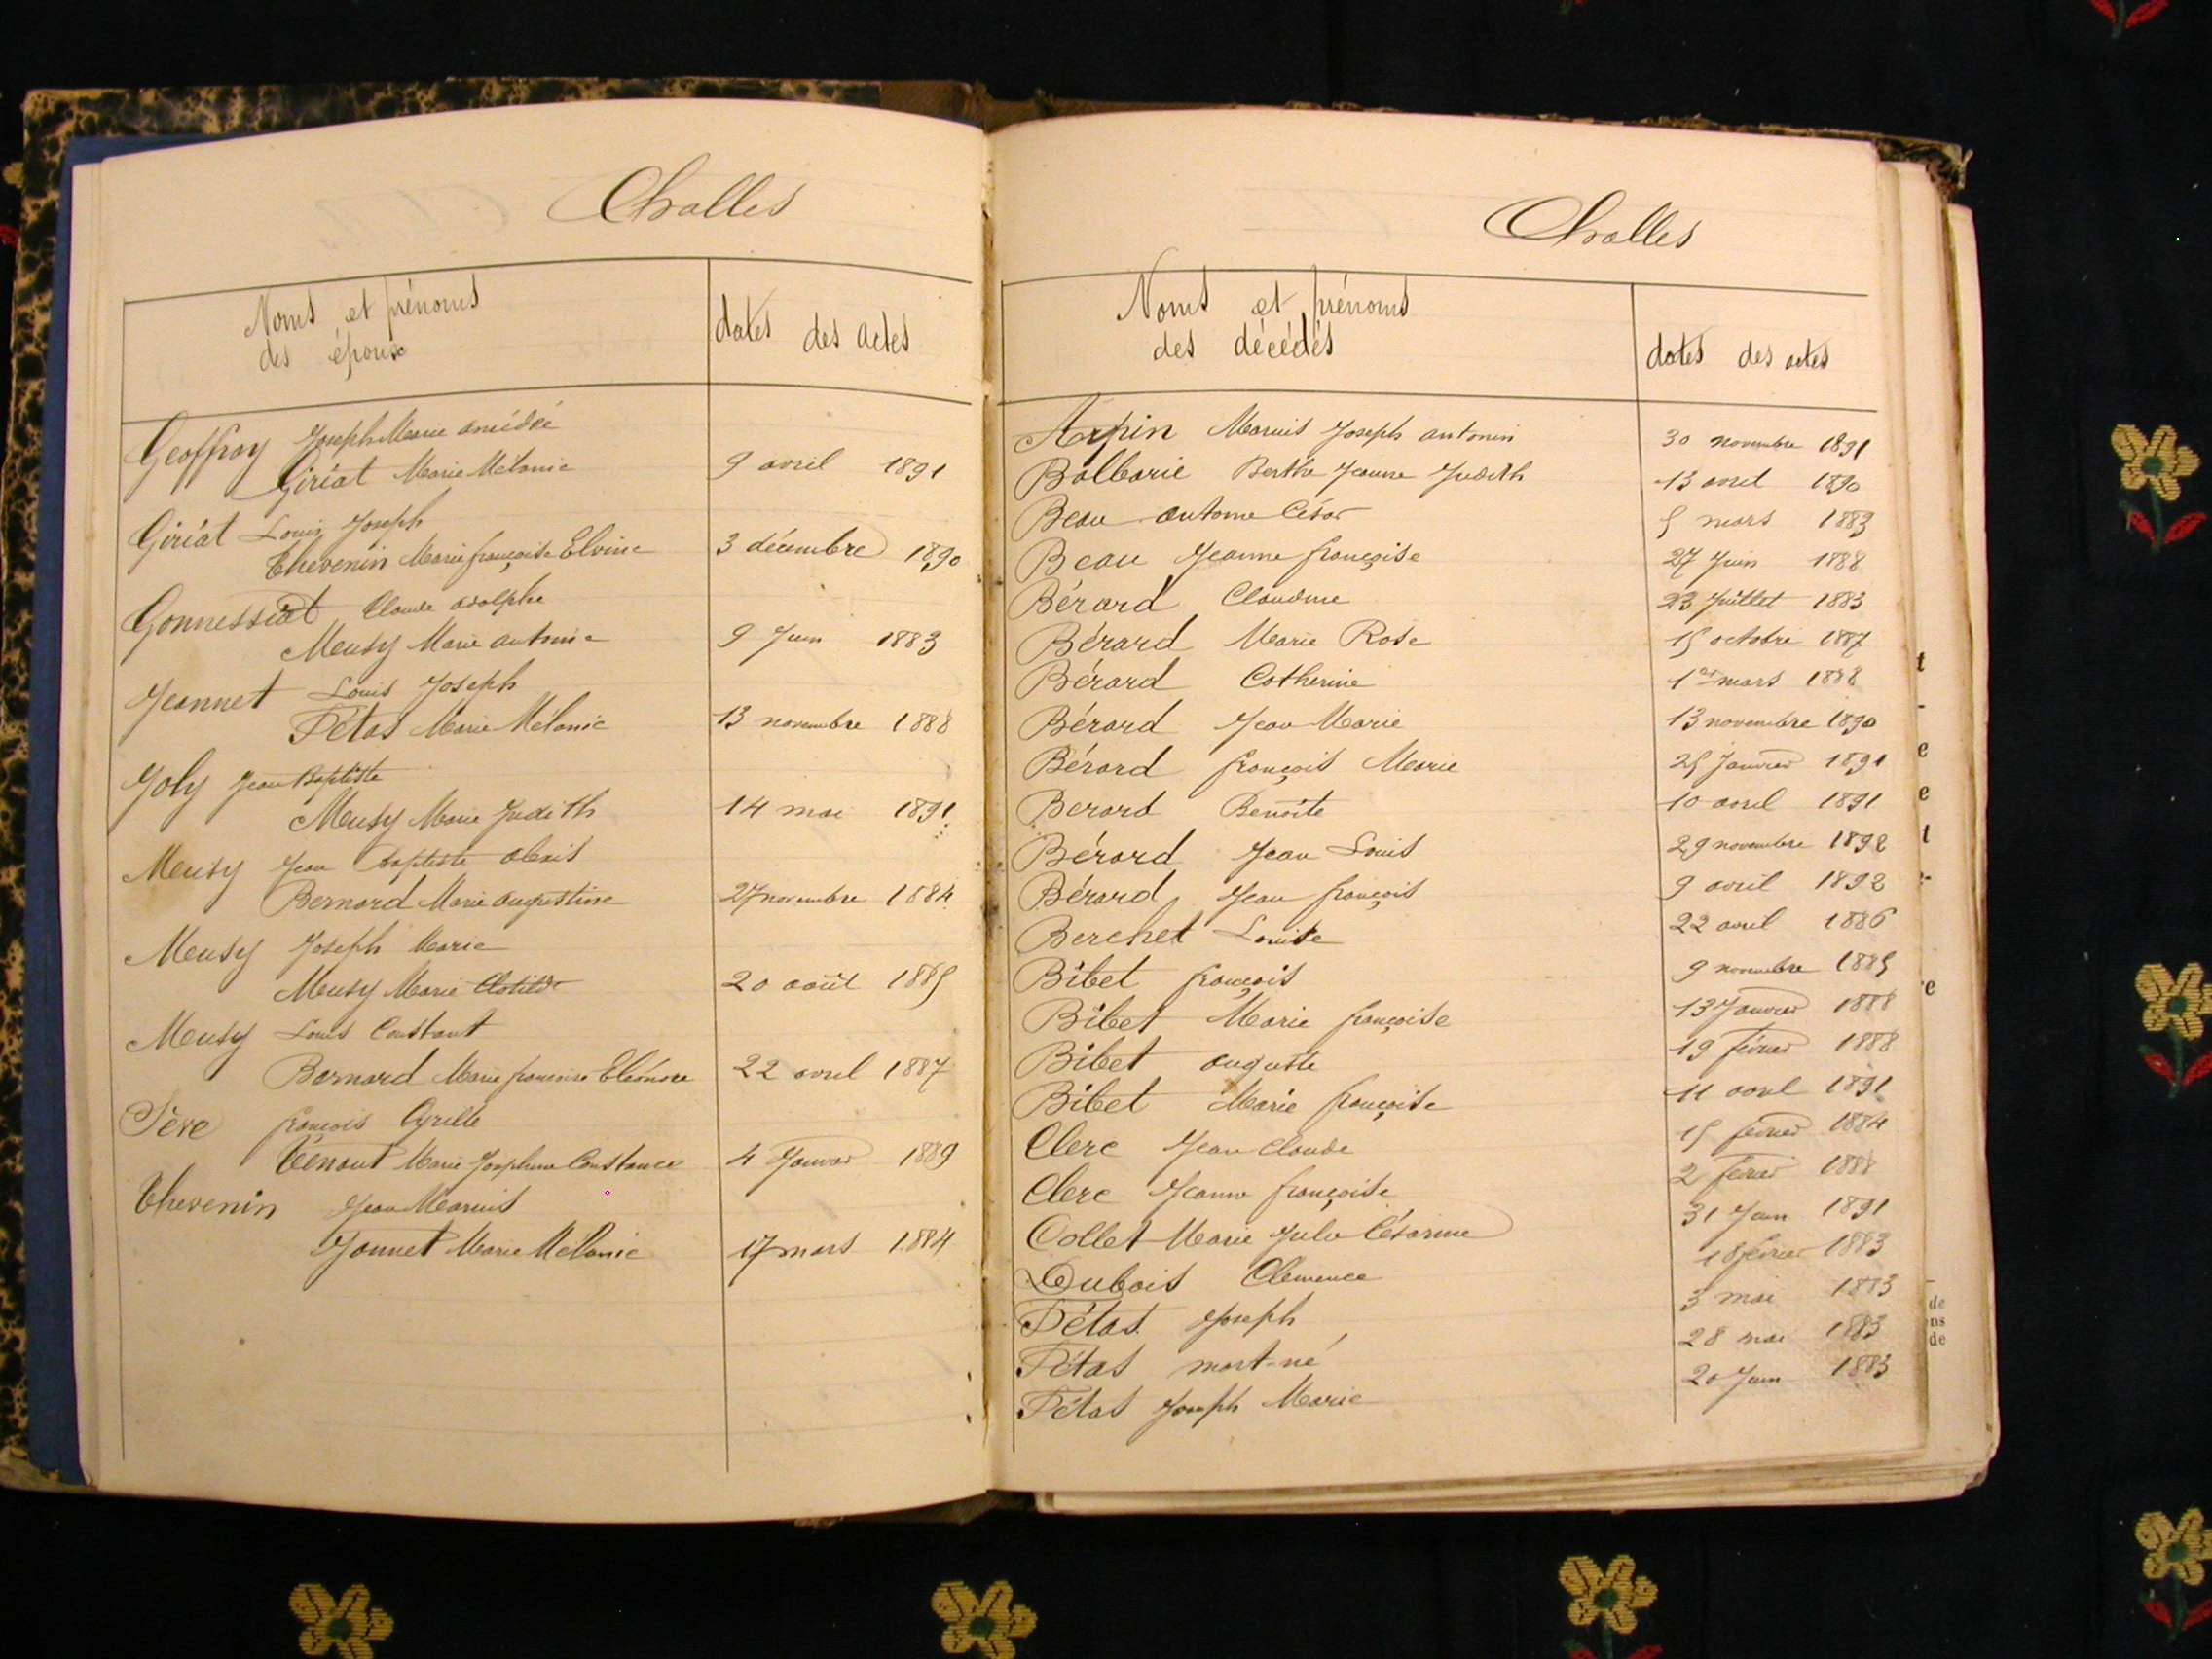 Challes
Noms et prénoms
des époux
dates des actes
Geoffray Joseph Marie amédée
Giriat Marie Mélanie 9 avril 1891
Giriat Louis Joseph
Thevenin Marie françoise Elvine 3 décembre 1890
Gonnessiat Claude adolphe
Meusy Marie antonie 9 Juin 1883
Jeannet Louis Joseph
Fétas Marie Mélanie 13 novembre 1888
Joly Jean Baptiste
Meusy Marie Judith 14 mai 1891
Meusy Jean Baptiste alexis
Bernard Marie augustine 27 novembre 1884
Meusy Joseph Marie
Meusy Marie Clotilde 20 août 1885
Meusy Louis Constant
Bernard Marie françoise Eléonore 22 avril 1887
Sève françois Cyrille
Vénaut Marie Josephine Constance 4 Janvier 1889
Thevenin Jean Marius
Jonnet Marie Mélanie 17 mars 1884
Challes
Noms et prénoms
des décédés
dates des actes
Arpin Marius Joseph antonin 30 novembre 1891
Balbarie Berthe Jeanne Judith 13 avril 1890
Beau antoine César 5 mars 1883
Beau Jeanne françoise 27 Juin 1888
Bérard Claudine 23 Juillet 1883
Bérard Marie Rose 15 octobre 1887
Bérard Catherine 1er mars 1888
Bérard Jean Marie 13 novembre 1890
Bérard françois Marie 25 Janvier 1891
Berard Benoite 10 avril 1891
Bérard Jean Louis 29 novembre 1892
Bérard Jean françois 9 avril 1892
Berchet Louise 22 avril 1886
Bibet françois 9 novembre 1885
Bibet Marie françoise 13 Janvier 1888
Bibet auguste 19 février 1888
Bibet Marie françoise 11 avril 1891
Clerc Jean Claude 15 février 1884
Clerc Jeanne françoise 2 février 1888
Collet Marie Julie Césarine 31 1891
Dubois Clémence 18 février 1883
Fétas Joseph 3 mai 1883
Fétas mort-né 28 mai 1883
Fétas Joseph Marie 20 Juin 1883